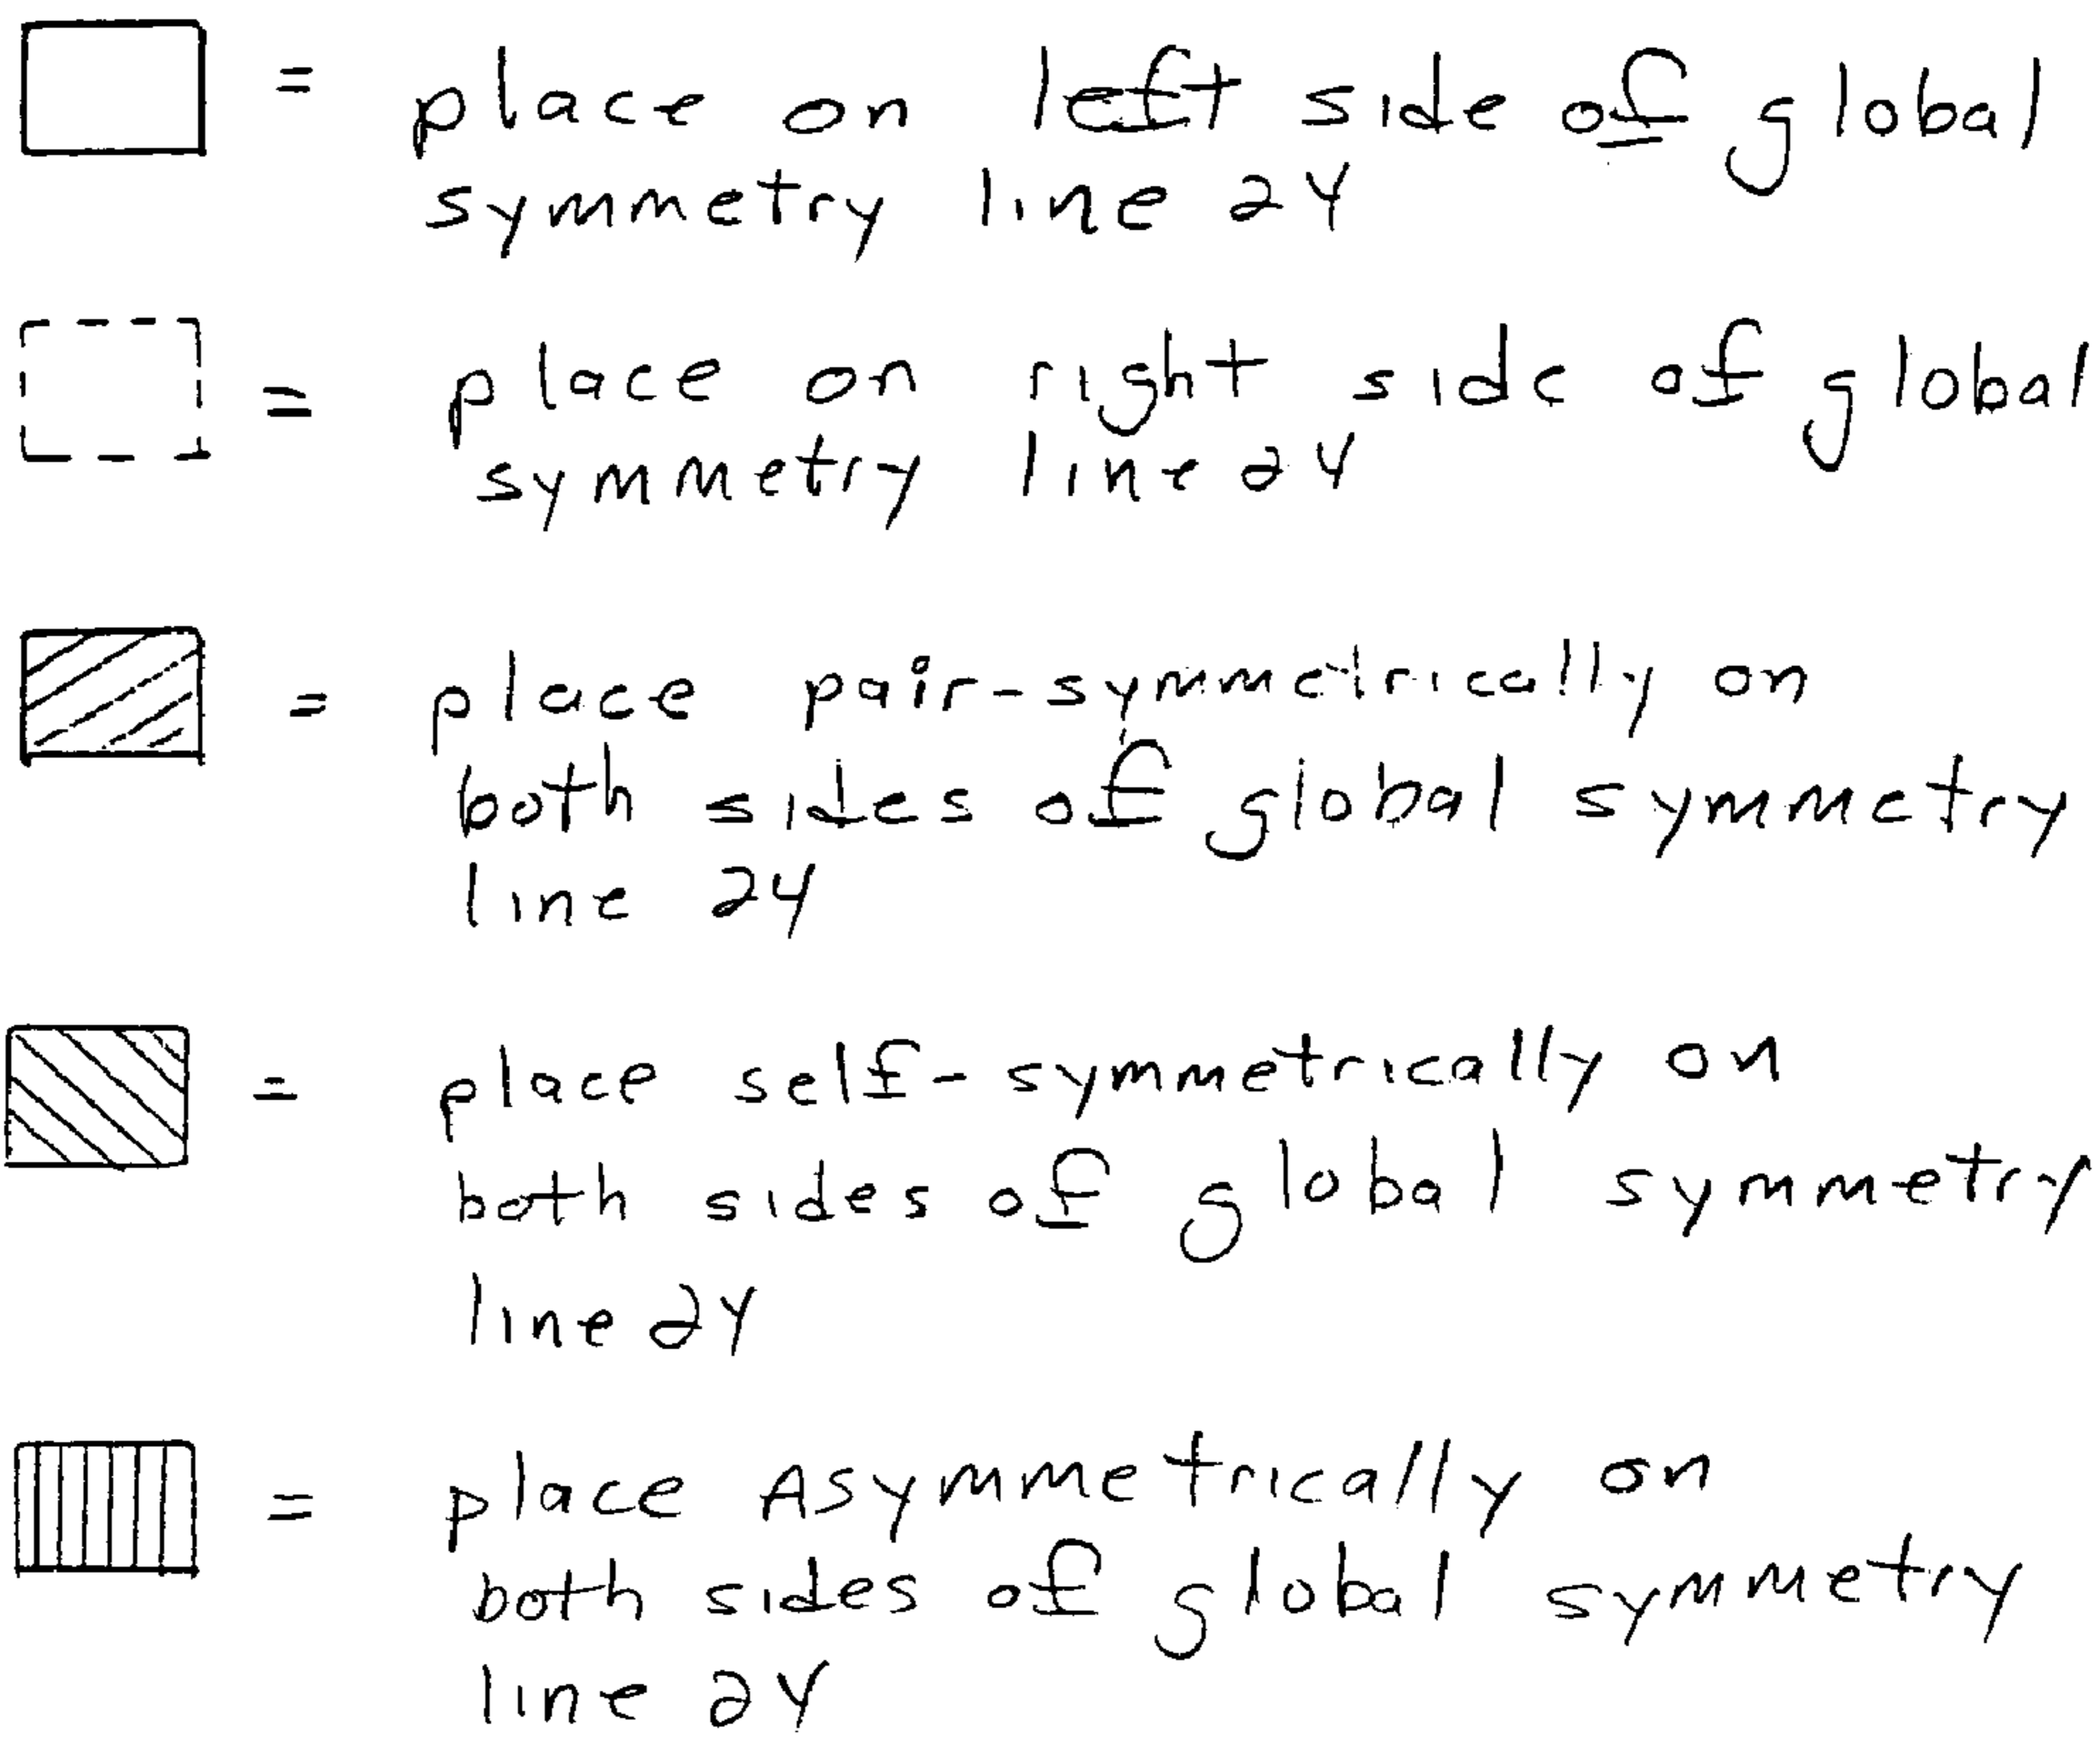 = place on left side of global
symmetry line 24
= place on right side of global
symmetry line 24
= place pair-symmetrically on
both sides of global symmetry
line 24
= place self-symmetrically on
both sides of global symmetry
line 24
= place Asymmetrically on
both sides of global symmetry
line 24